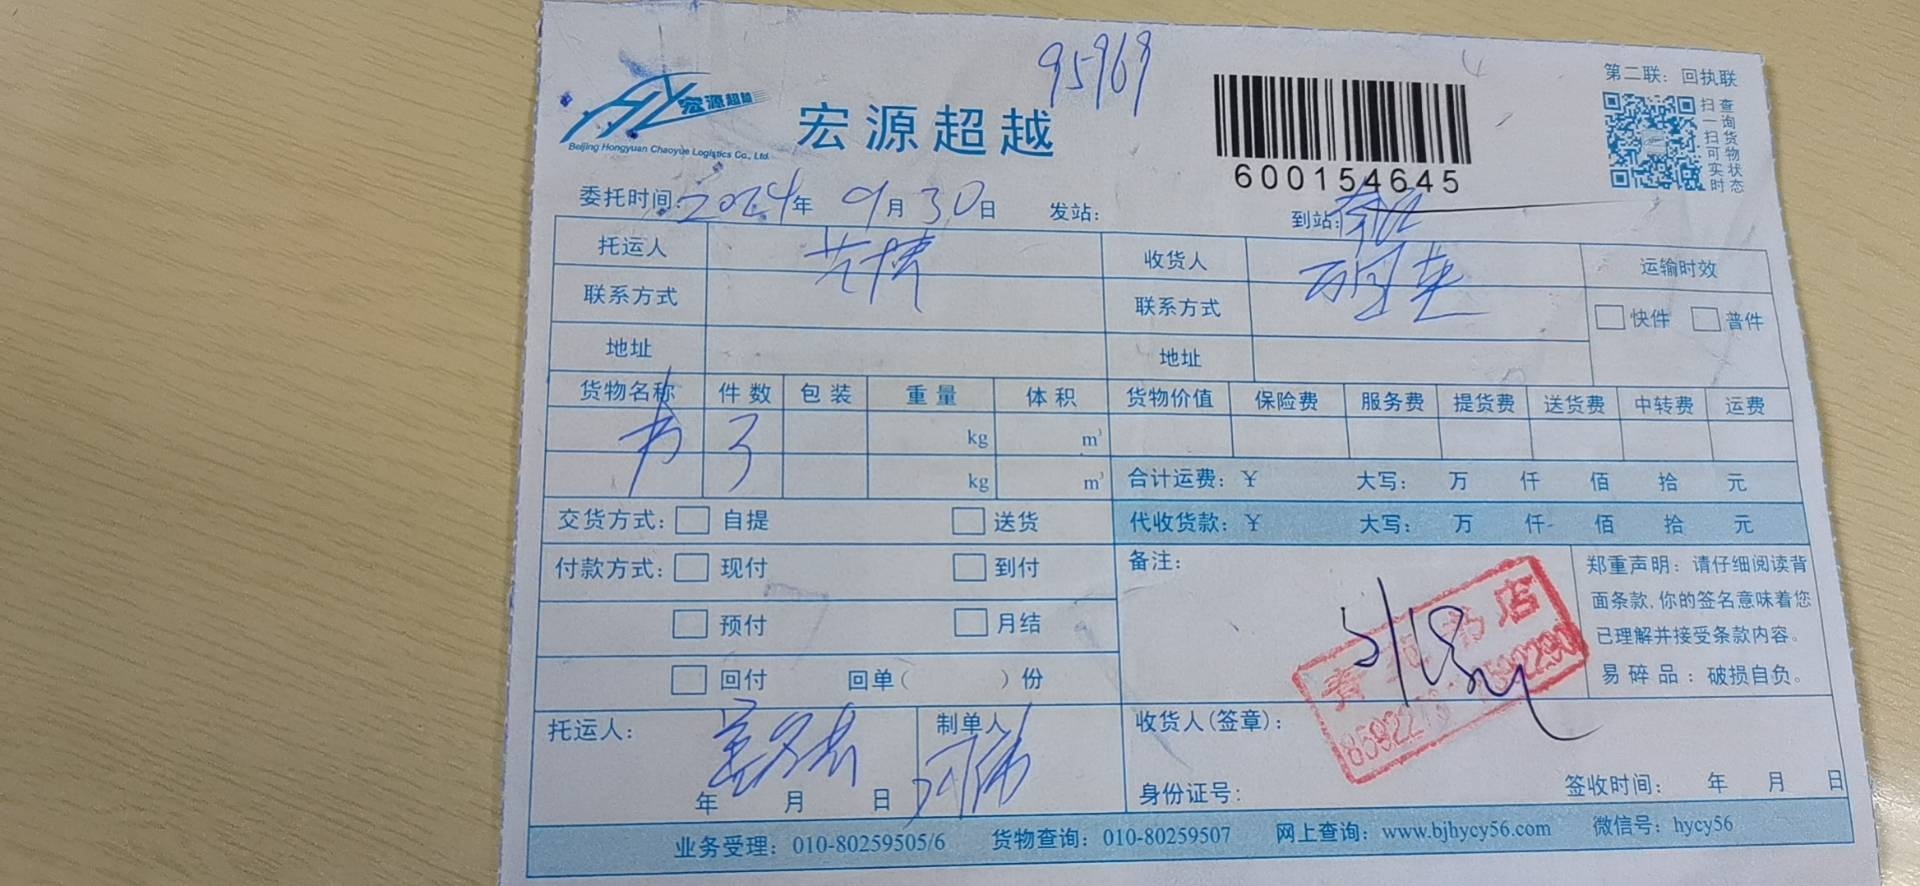 95969
宏源超越
Beijing Hongyuan Chaoyue Logistics Co., Ltd.
宏源超越
600154645
第二联：回执联
扫一扫可实时
查询货物状态
委托时间：2024年 9月30日 发站： 到站：秦皇
托运人 收货人 运输时效
联系方式 联系方式 快件 普件
地址 地址
货物名称 件数 包装 重量 体积 货物价值 保险费 服务费 提货费 送货费 中转费 运费
书 3 kg m³
kg m³ 合计运费：￥ 大写： 万 仟 佰 拾 元
交货方式： 自提 送货 代收货款：￥ 大写： 万 仟 佰 拾 元
付款方式： 现付 到付 备注：
预付 月结
回付 回单（ ）份
郑重声明：请仔细阅读背
面条款,你的签名意味着您
已理解并接受条款内容。
易碎品：破损自负。
书店
托运人： 制单人 收货人(签章)：
年 月 日 身份证号： 签收时间： 年 月 日
业务受理：010-80259505/6 货物查询：010-80259507 网上查询：www.bjhycy56.com 微信号：hycy56